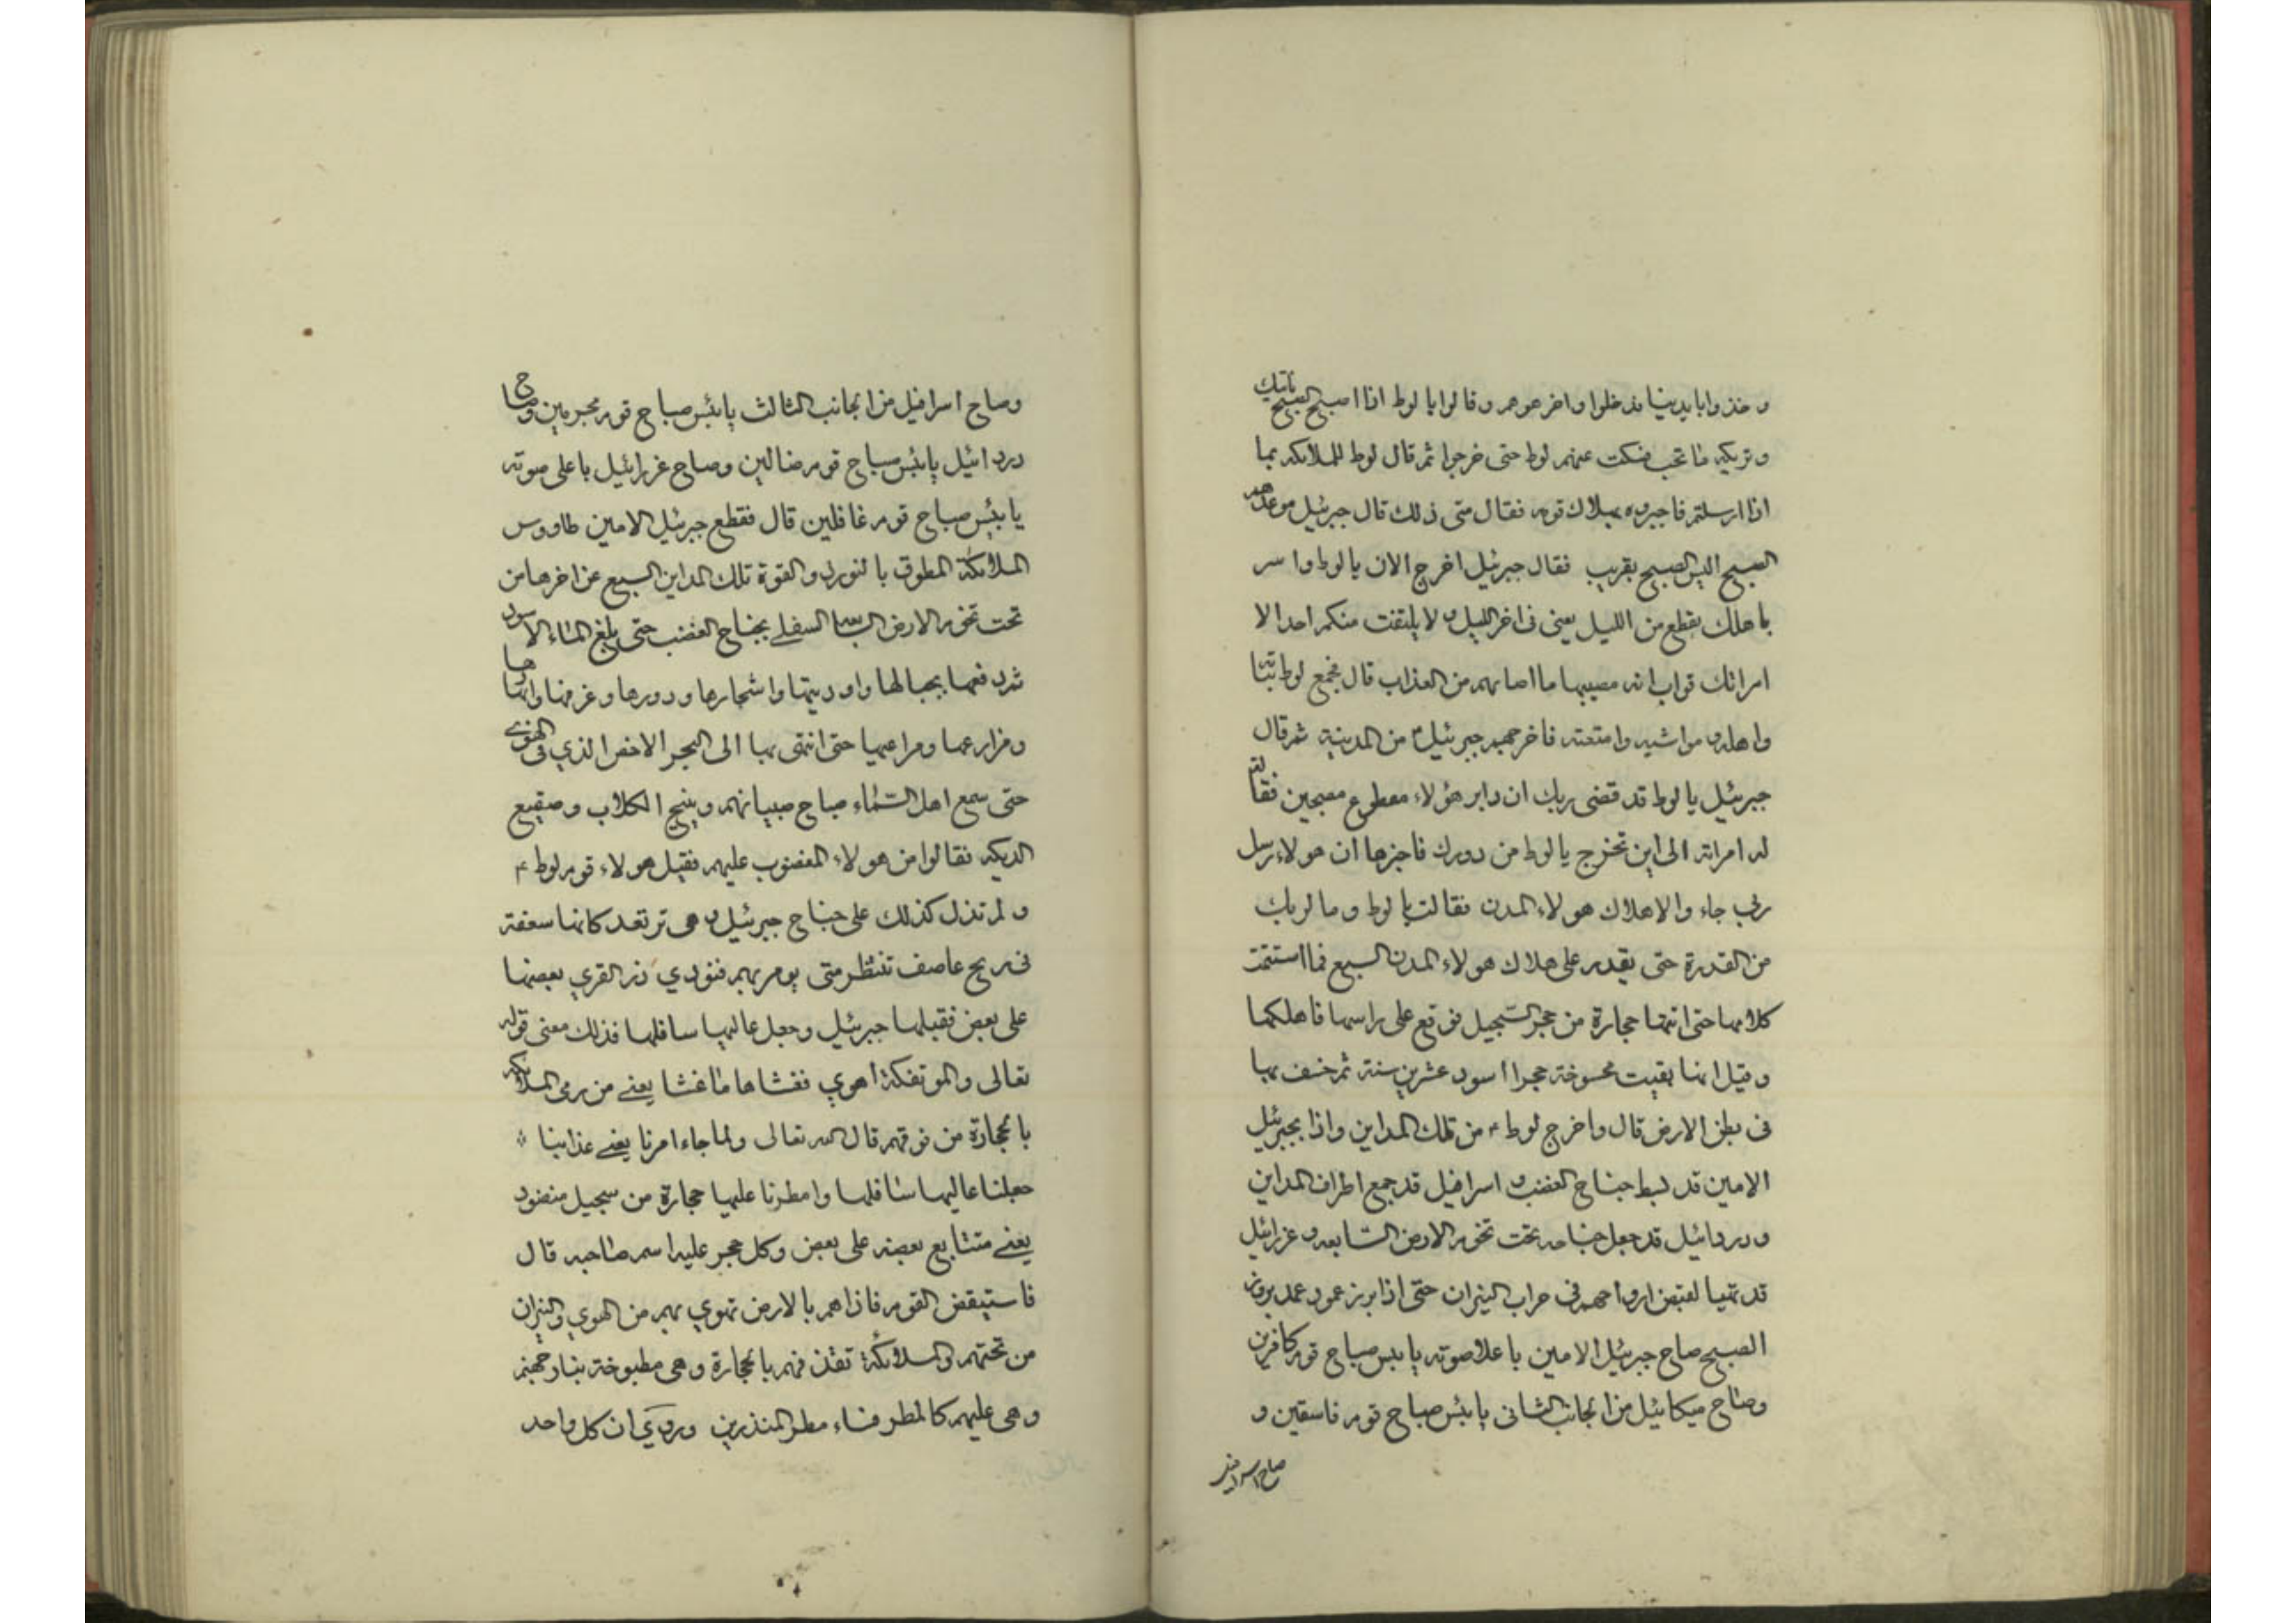 وخذوا بايدينا فدخلوا واخرجوهم وقالوا يا لوط اذا اصبح الصبح ناتيك
ونريك ما تحب فسكت عنهم لوط حتى خرجوا ثم قال لوط للملائكه بما
اذا ارسلتم فاخبروه بهلاك قومه فقال متى ذلك قال جبرئيل موعدهم
الصبح اليس الصبح بقريب فقال جبرئيل اخرج الان يا لوط واسر
باهلك بقطع من الليل يعنى فى اخر الليل ولا يلتفت منكم احد الا
امراتك انه مصيبها ما اصابهم من العذاب قال فجمع لوط بناته
واهله ومواشيه وامتعته فاخرجهم جبرئيل من المدينة ثم قال
جبرئيل يا لوط قد قضى ربك ان دابر هؤلاء مقطوع مصبحين فقالت
له امراته الى اين تخرج يا لوط من دورك فاخبرها ان هولاء رسل
ربى جاء والاهلاك هولاء المدن فقالت يا لوط وما لربك
من القدرة حتى يقدر على هلاك هولاء المدن السبع فما استتمت
كلامها حتى اتتها حجارة من حجر السجيل فوقع على راسها فاهلكها
وقيل انها بقيت ممسوخة حجرا اسود عشرين سنة ثم خسف بها
فى بطن الارض قال واخرج لوط ٤ من تلك المداين واذا بجبرئيل
الامين قد بسط جناح الغضب و اسرافيل قد جمع اطراف المداين
ودردائيل قد جعل جناحه تحت تخوم الارض السابعه و عزرائيل
قد تهيا لقبض ارواحهم فى حراب النيران حتى اذا برز عمود
الصبح صاح جبرئيل الامين باعلا صوته يا بئس صباح قوم كافرين
وصاح ميكائيل من الجانب الثانى يا بئس صباح قوم فاسقين و
صاح اسرافيل
وصاح اسرافيل من الجانب الثالث يا بئس صباح قوم مجرمين وصاح
دردائيل يا بئس صباح قوم ضالين وصاح عزرائيل باعلى صوته
يا بئس صباح قوم غافلين قال فقطع جبرئيل الامين طاووس
الملائكة المطوق بالنور والقوة تلك المداين السبع عن اخرها من
تحت تخوم الارض السابعه السفلى بجناح الغضب حتى بلغ الماء الاسود
ثم رفعها بجبالها واوديتها واشجارها ودورها وغرفها وانهارها
ومزارعها ومراعيها حتى انتهى بها الى البحر الاخضر الذي فى الهوى
حتى سمع اهل السماء صياح صبيانهم ونبح الكلاب وصقيع
الديكه فقالوا من هولاء المغضوب عليهم فقيل هولاء قوم لوط ٤
ولم تزل كذلك على جناح جبرئيل وهى ترتعد كانها سعفة
فى ريح عاصف تنتظر متى يومر بهم فنودي ذر القري بعضها
على بعض فقلبها جبرئيل وجعل عاليها سافلها فذلك معنى قوله
تعالى والموتفكة اهوي فغشاها ما غشا يعنى من رمى الملائكه
بالحجارة من فوقهم قال الله تعالى ولما جاء امرنا يعنى عذابنا
جعلنا عاليها سافلها وامطرنا عليها حجارة من سجيل منضود
يعنى متتابع بعضه على بعض وكل حجر عليه اسم صاحبه قال
فاستيقض القوم فاذا هم بالارض تهوي بهم من الهوي والنيران
من تحتهم والملائكة تقذفهم بالحجارة وهى مطبوخة بنار جهنم
وهى عليهم كالمطر فساء مطر المنذرين وروي ان كل واحد